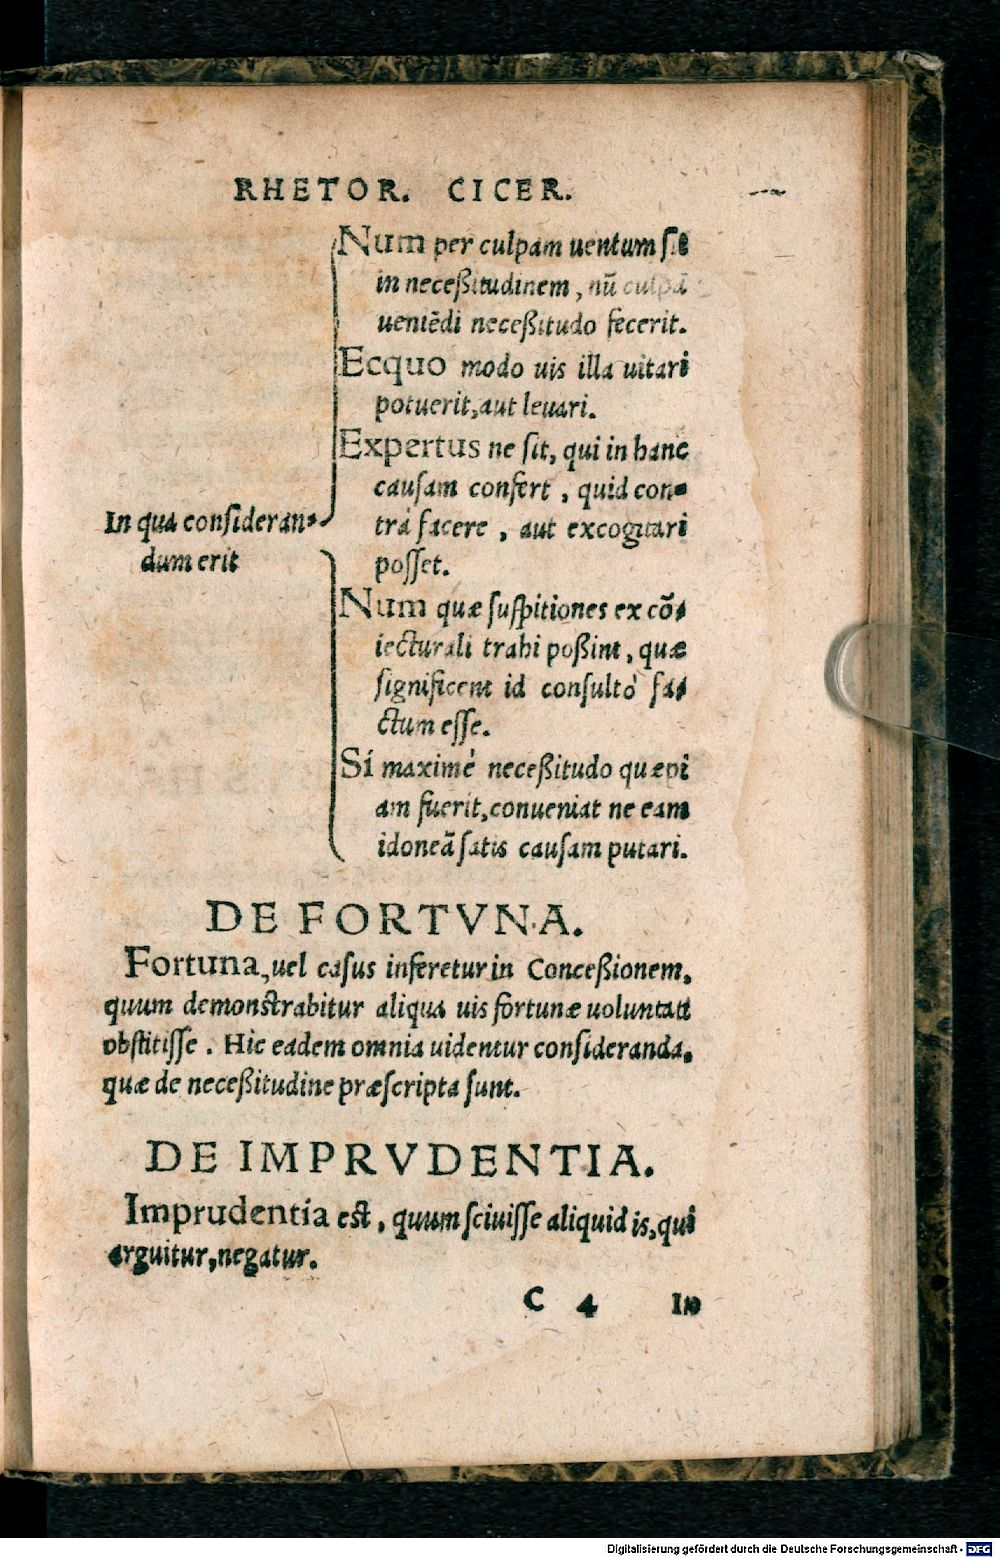 RHETOR. CICER.
Num per culpam uentum sit
in neceßitudinem, nū culpā
ueniēdi neceßitudo fecerit.
Ecquo modo uis illa uitari
potuerit, aut leuari.
Expertus ne sit, qui in hanc
causam confert, quid con-
trà facere, aut excogitari
posset.
In qua consideran-
dum erit
Num quæ suspitiones ex cō-
iecturali trahi poßint, quæ
significent id consultò fa-
ctum esse.
Si maximè neceßitudo quæpi
am fuerit, conueniat ne eam
idoneā satis causam putari.
DE FORTVNA.
Fortuna, uel casus inferetur in Conceßionem,
quum demonstrabitur aliqua uis fortunæ uoluntati
obstitisse. Hic eadem omnia uidentur consideranda,
quæ de neceßitudine præscripta sunt.
DE IMPRVDENTIA.
Imprudentia est, quum sciuisse aliquid is, qui
arguitur, negatur.
C 4 In
Digitalisierung gefördert durch die Deutsche Forschungsgemeinschaft - DFG